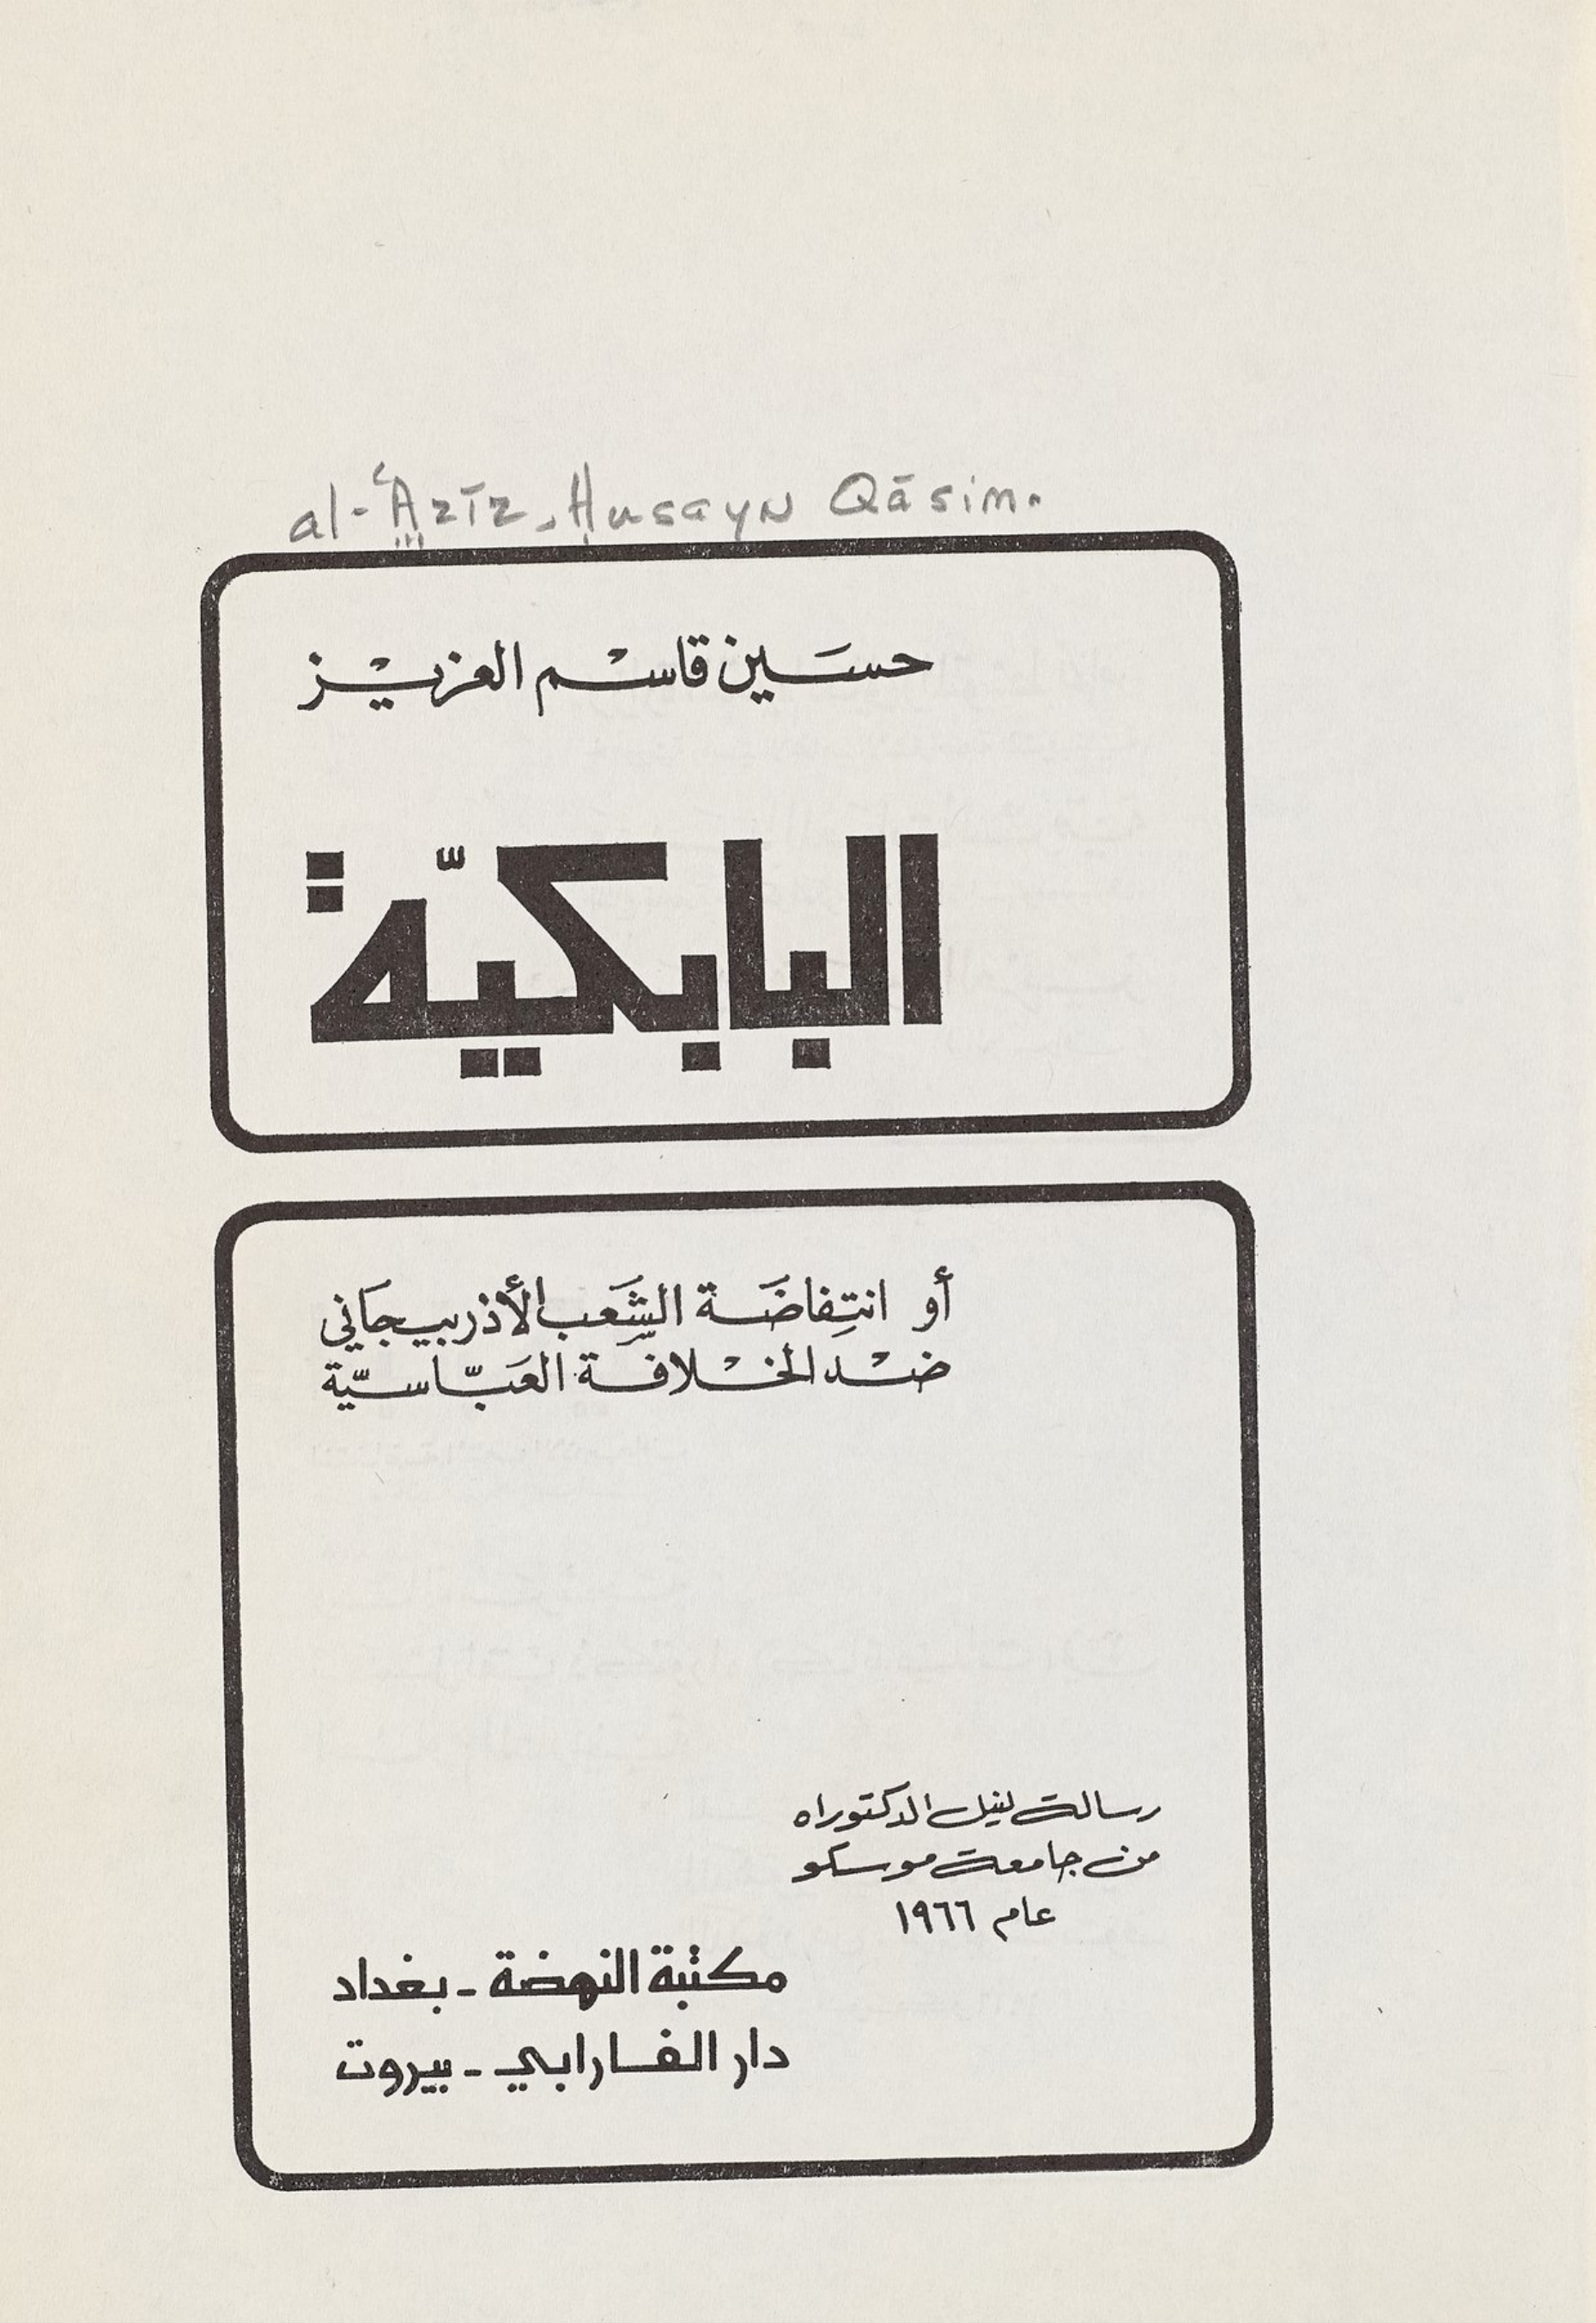 al-ʿAzīz, Ḥusayn Qāsim.
حسَين قاسْم العزيْز
البابكيّة
أو انتِفاضَة الشَّعب الأذربيجَاني
ضْد الخْلافة العَبّاسيّة
رسالة لنيل الدكتوراه
من جامعة موسكو
عام ١٩٦٦
مكتبة النهضة - بغداد
دار الفارابي - بيروت